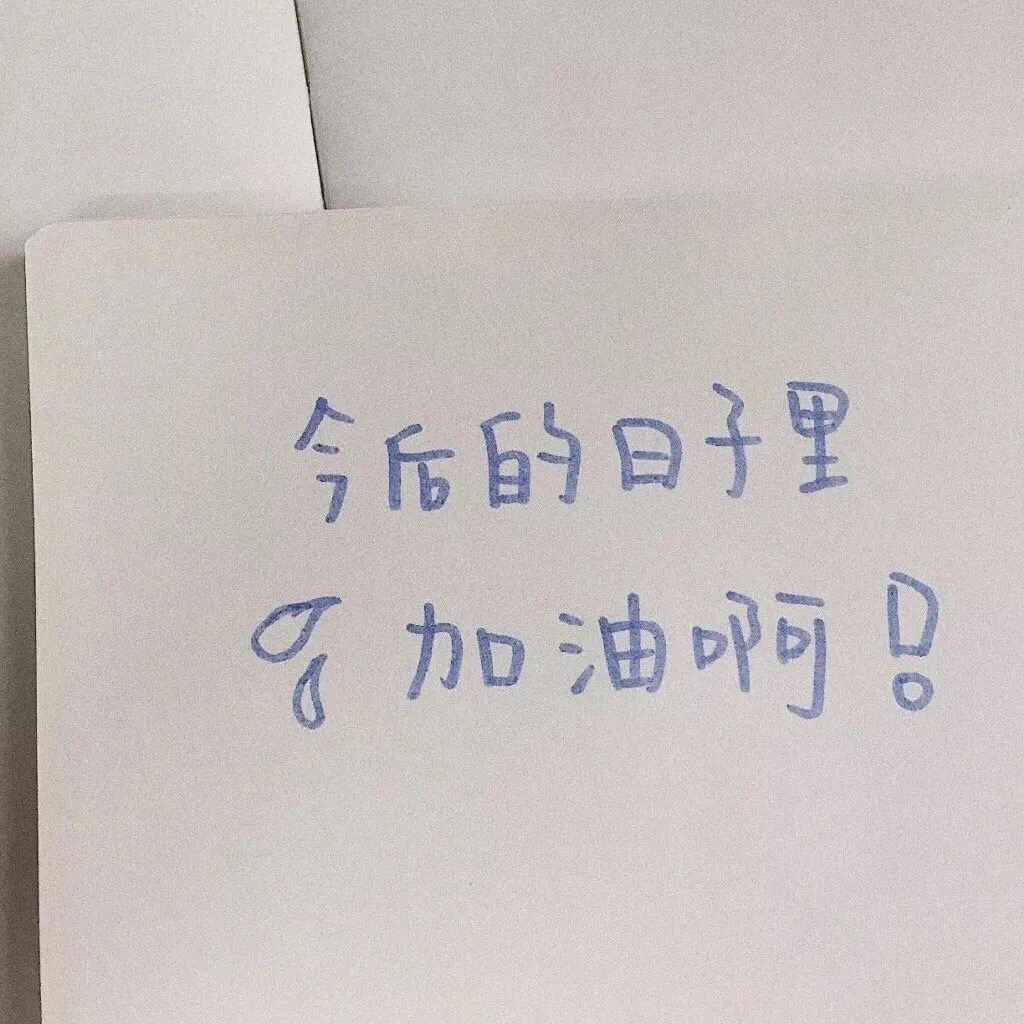 今后的日子里
加油啊！